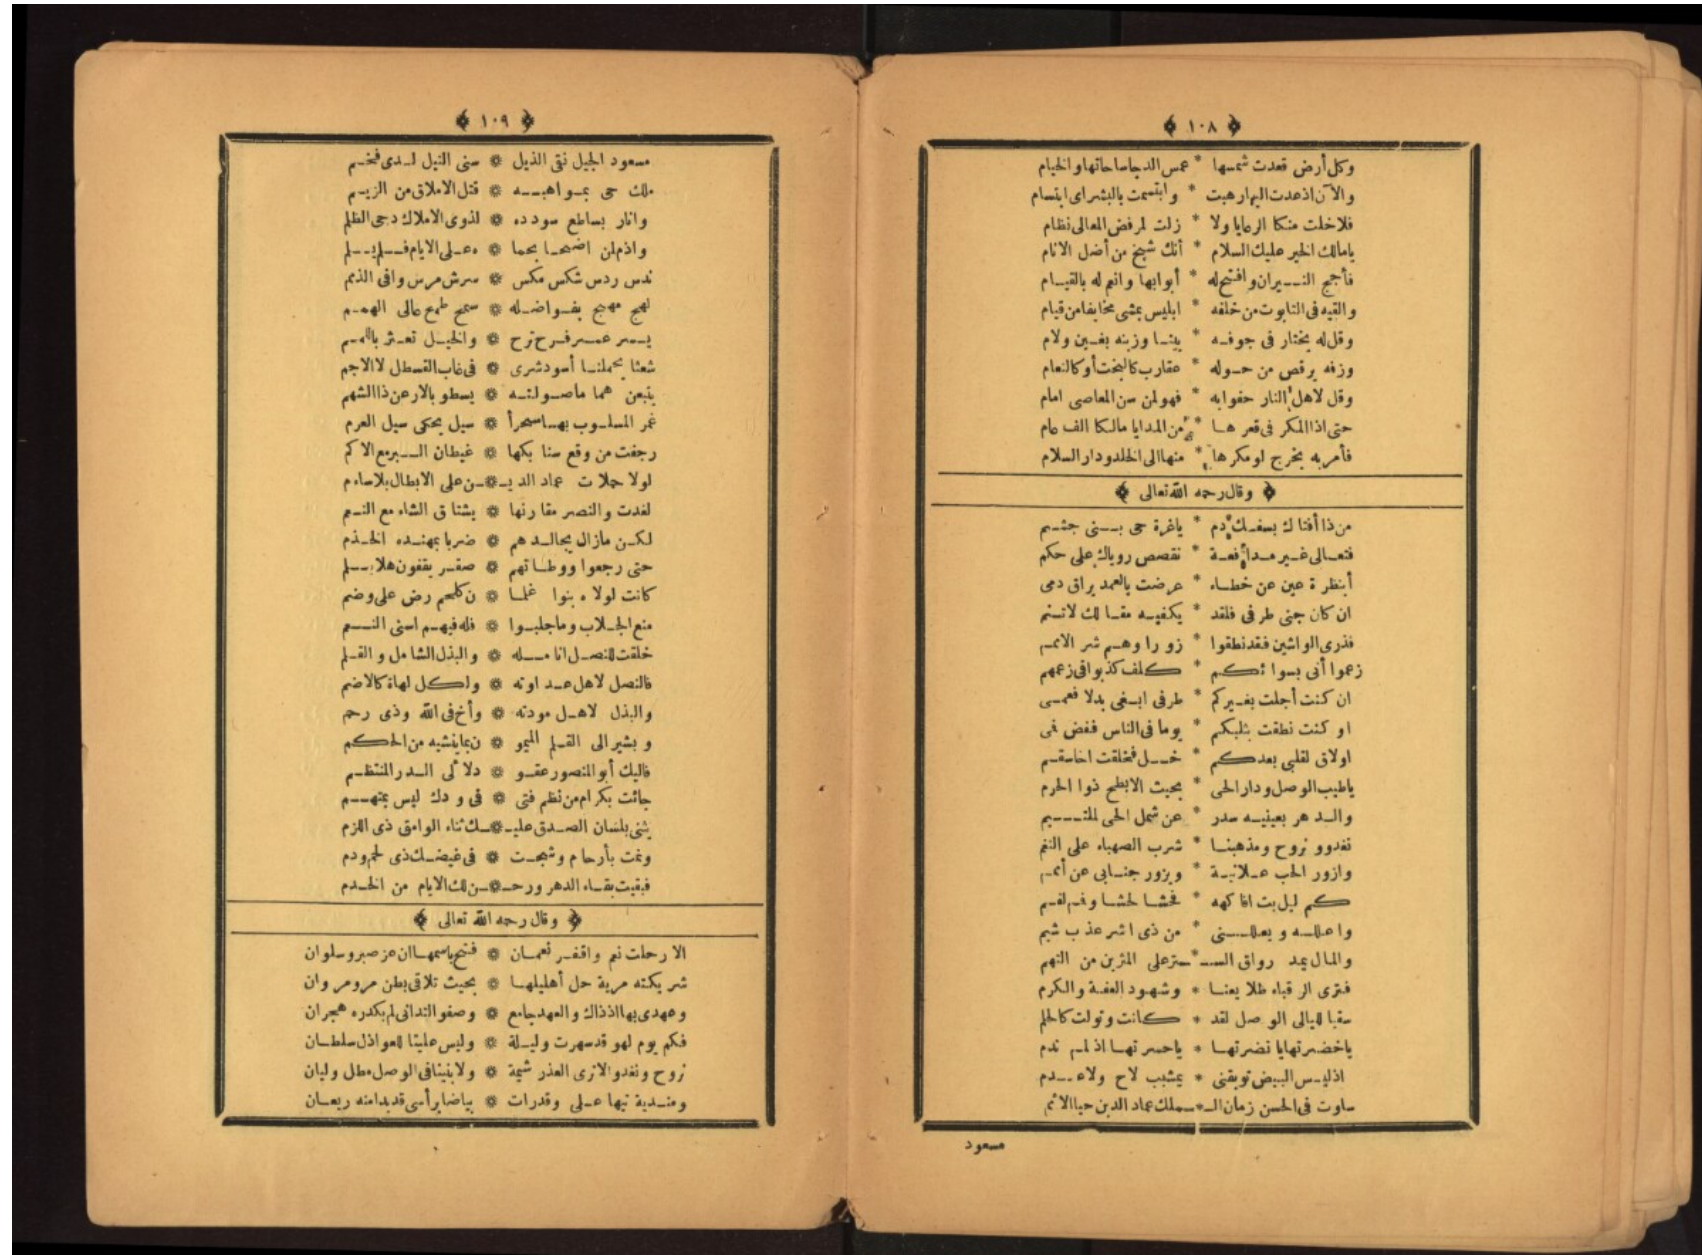 ﴿ ١٠٨ ﴾
وكل أرض قعدت شمسها * عمس الدجا ساحاتها والخيام
والآن اذ عدت اليها رهبت * وابتسمت بالبشر اى ابتسام
فلا خلت منكا الرعايا ولا * زلت لمرفض المعالى نظام
يا مالك الخير عليك السلام * أتك شيخ من أضل الانام
فأجج النــيران وافتح له * أبوابها وانعم له بالقيــام
والقيه فى التابوت من خلفه * ابليس يمشى مخايفا من قيام
وقل له يختار فى جوفــه * بيتــا وزينه بغــين ولام
وزفه يرقص من حــوله * عقارب كالبخت أو كالنعام
وقل لاهل النار حفوا به * فهو لمن سن المعاصى امام
حتى اذا المكر فى قعرهــا * من المدايا مالكا الف عام
فأمر به يخرج لو مكرها * منها الى الخلد ودار السلام
﴿ وقال رحمه الله تعالى ﴾
من ذا أفتاك بسفــك دم * ياغرة حى بــنى جشــم
فتعــالى غــير مدافعــة * نقصص روياك على حكم
أبنظرة عين عن خطــاء * عرضت بالعمد يراق دمى
ان كان جنى طرفى فلقد * يكفيــه مقــالك لا تــنم
فذرى الواشين فقد نطقوا * زورا وهــم شر الامــم
زعموا أنى بسواءكــم * كلف كذبوا فى زعمهم
ان كنت أجلت بغــيركم * طرفى ابــغى بدلا فعمــى
او كنت نطقت بثلبكم * يوما فى الناس ففض فمى
اولاق لقلبى بعدكــم * خــل فخلقت اخا سقــم
ياطيب الوصل ودار الحى * بحيث الابطح ذوا الحرم
والــدهر بعينيــه سدر * عن شمل الحى الملتــيم
نغدوو نروح ومذهبنــا * شرب الصهباء على النغم
وازور الحب عــلانيــة * ويزور جنــابى عن أمــم
كــم ليل بت افاكهه * فحشــا لحشــا وفــم لفــم
واعللــه ويعللــنى * من ذى اشر عذب شبم
والمال يمد رواق الســـ*ــتر على المثرين من التهم
فترى الرقباء ظلا يعنــا * وشهود العفــة والكرم
سقيا لليالى الوصل لقد * كــانت وتولت كالحلم
ياخضرتها يا نضرتهــا * ياحسرتهــا اذ لــم تدم
اذ ليــس البيض توبقنى * بمشيب لاح ولا عــدم
ساوت فى الحسن زمان الـ*ــملك عماد الدين حيا الامم
مسعود
﴿ ١٠٩ ﴾
مسعود الجيل نقى الذيل * سنى النيل لــدى فخــم
ملك حى بمــواهبــه * قتل الاملاق من الزيــم
وانار بساطع سودده * لذوى الاملاك دجى الظلم
واذم لمن اضحــا بحما * ه عــلى الايام فــلم يــلم
ندس ردس شكس مكس * سرش مرس وافى الذمم
لهج مهج بفــواضــله * سمح طمح عالى الهمــم
يــسر عســر فــرح ترح * والخيــل تعــثر باللمــم
شعثا يحملنــا أسود شرى * فى غاب القسطل لا الاجم
يتبعن هما ما صــولتــه * يسطو بالارعن ذا الشهم
غمر المسلــوب بهــا سحرأ * سيل يحكى سيل العرم
رجفت من وقع سنابكها * غيطان الــبر مع الاكم
لولا حملات عماد الديــ*ــن على الابطال بلا سام
لغدت والنصر مقارنها * يشتاق الشاء مع النــعم
لكــن مازال يجالــدهم * ضربا بمهنــده الخــذم
حتى رجعوا ووطــاتهم * صقــر يقفون هلا بــلم
كانت لولاه بنوا غلمــا * ن كلمحم رض على وضم
منع الجــلاب وما جلبــوا * فله فيهــم اسنى النــعم
خلقت للنصــل انامــله * والبذل الشامل والقــلم
فالنصل لاهل عــداوته * ولكــل لهاة كالاضم
والبذل لاهــل مودته * وأخ فى الله وذى رحم
ويشير الى القــلم الميمو * ن بما ينشيه من الحكــم
فاليك أبو المنصور عقــو * دلاءلى الــدر المنتظــم
جائت بكرام من نظم فتى * فى ودك ليس بمتهــم
يثنى بلسان الصــدق عليــ*ــك ثناء الوامق ذى اللزم
ونمت بأرحام وشجــت * فى غيضــك ذى لحم ودم
فبقيت بقــاء الدهر ورحــ*ــن لك الايام من الخــدم
﴿ وقال رحمه الله تعالى ﴾
الا رحلت نعم واقفــر نعمــان * فتح باسمهــا ان عز صبر وسلوان
شريكته مرية حل أهليلهــا * بحيث تلاقى بطن مر ومروان
وعهدى بها اذ ذاك والعهد جامع * وصفو التدانى لم يكدره هجران
فكم يوم لهو قد سهرت وليــلة * وليس علينا للعواذل سلطــان
نروح ونغدو لا نرى الغدر شيمة * ولا بيننا فى الوصل مطل وليان
ومنــدبة تيها عــلى وقد رات * بياضا برأسى قد بدا منه ريعــان